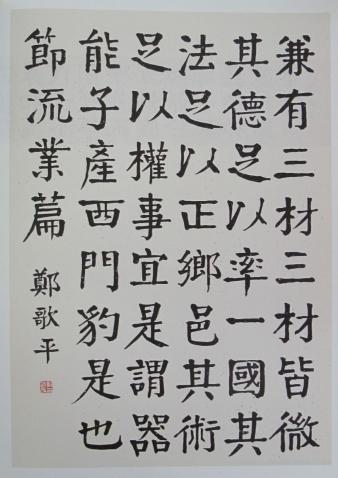 兼有三材三材皆微
其德足以率一國其
法足以正鄉邑其術
足以權事宜是謂器
能子產西門豹是也
節流業篇
鄭歌平